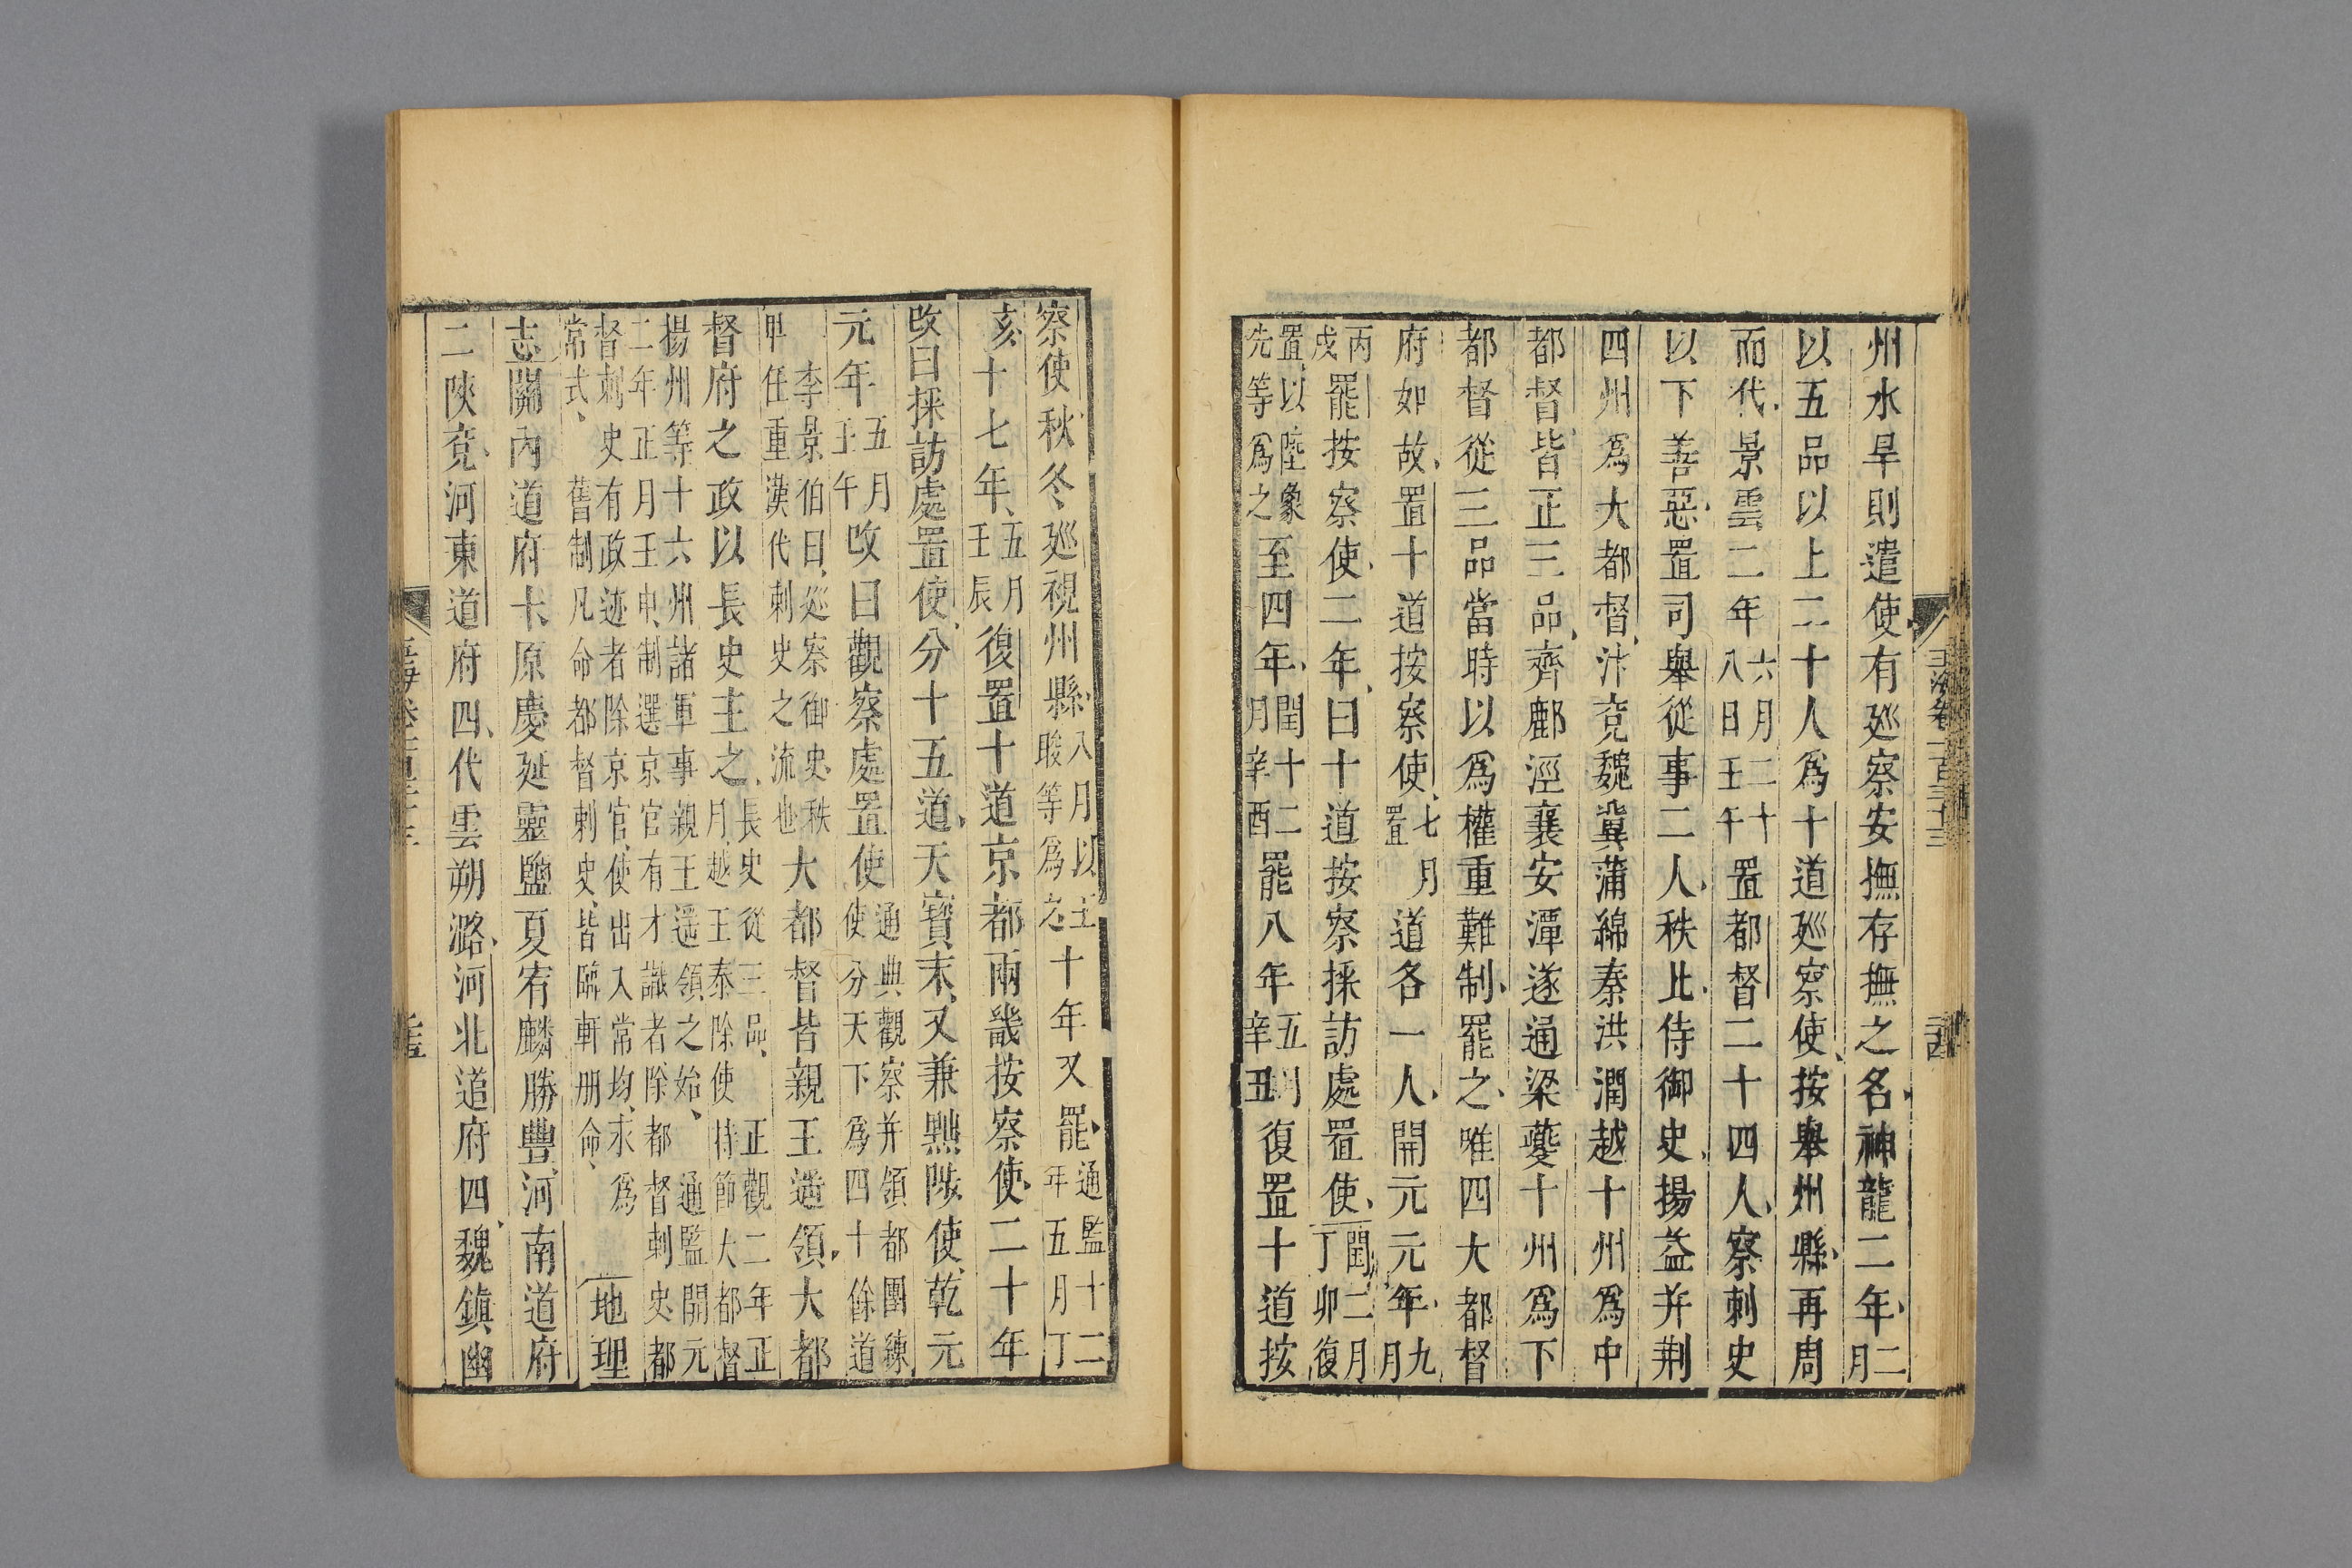 州水旱則遣使有廵察安撫存撫之名神龍二年二月
以五品以上二十人爲十道廵察使按舉州縣再周
而代景雲二年六月二十八日壬午置都督二十四人察刺史
以下善惡置司舉從事二人秩比侍御史揚益并荆
四州爲大都督汴兖魏冀蒲綿秦洪潤越十州爲中
都督皆正三品齊鄜涇襄安潭遂通梁夔十州爲下
都督從三品當時以爲權重難制罷之唯四大都督
府如故置十道按察使七月置道各一人開元元年九月
丙戌罷按察使二年曰十道按察採訪處置使閏二月丁卯復
置以陸象先等爲之至四年閏十二月辛酉罷八年五月辛丑復置十道按
玉海卷一百三十三
察使秋冬廵視州縣八月以王晙等爲之十年又罷通監十二年五月丁
亥十七年五月壬辰復置十道京都兩畿按察使二十年
改曰採訪處置使分十五道天寶末又兼黜陟使乾元
元年五月壬午改曰觀察處置使通典觀察并領都團練使分天下爲四十餘道
李景伯曰廵察御史秩卑任重漢代刺史之流也大都督皆親王遥領大都
督府之政以長史主之長史從三品正觀二年正月越王泰除使持節大都督
揚州等十六州諸軍事親王遥領之始通監開元二年正月壬申制選京官有才識者除都督刺史都
督刺史有政迹者除京官使出入常均求爲常式舊制凡命都督刺史皆臨軒册命地理
志關內道府六原慶延靈鹽夏宥麟勝豐河南道府
二陝兖河東道府四代雲朔潞河北道府四魏鎮幽